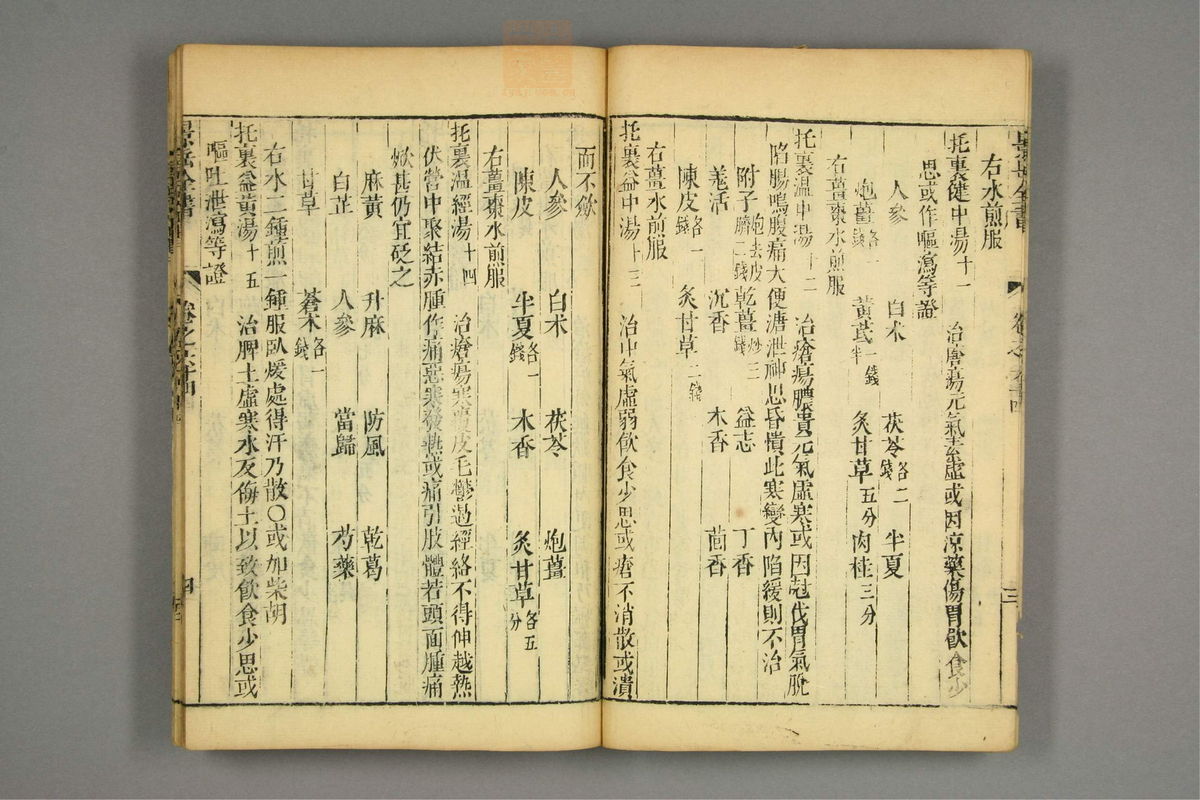 景岳全書
卷之六十四
三
右水煎服
托裏健中湯十一　治瘡瘍元氣素虛或因涼藥傷胃飲食少
思或作嘔瀉等證
人參　白朮　茯苓各二錢　半夏
炮薑各一錢　黃茋一錢半　炙甘草五分　肉桂三分
右薑棗水煎服
托裏溫中湯十二　治瘡瘍膿潰元氣虛寒或因尅伐胃氣脫
陷腸鳴腹痛大便溏泄神思昏憒此寒變內陷緩則不治
附子炮去皮臍二錢　乾薑炒三錢　益志　丁香
羗活　沉香　木香　茴香
陳皮各一錢　炙甘草二錢
右薑水煎服
托裏益中湯十三　治中氣虛弱飲食少思或瘡不消散或潰
而不歛
人參　白朮　茯苓　炮薑
陳皮　半夏各一錢　木香　炙甘草各五分
右薑棗水煎服
托裏溫經湯十四　治瘡瘍寒覆皮毛鬱遏經絡不得伸越熱
伏營中聚結赤腫作痛惡寒發熱或痛引肢體若頭面腫痛
焮甚仍宜砭之
麻黃　升麻　防風　乾葛
白芷　人參　當歸　芍藥
甘草　蒼朮各一錢
右水二鍾煎一鍾服臥煖處得汗乃散○或加柴胡
托裏益黃湯十五　治脾土虛寒水反侮土以致飲食少思或
嘔吐泄瀉等證
景岳全書
卷之六十四
四